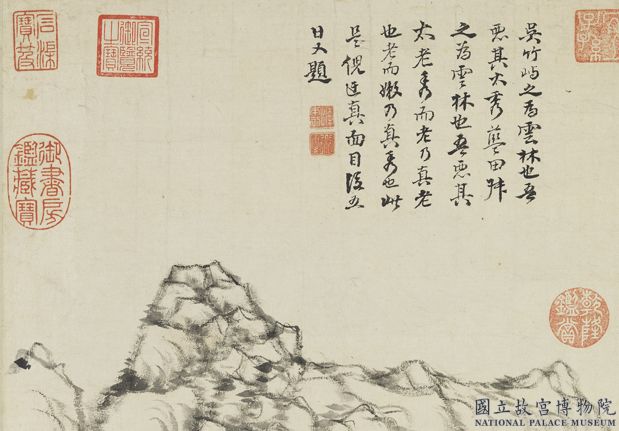 吳竹嶼之為雲林也吾
惡其太秀藍田叔
之為雲林也吾惡其
太老秀而老乃真老
也老而嫩乃真秀也此
是倪迂真面目後五
日又題
乾隆鑑賞
宣統御覽之寶
御書房鑑藏寶
國立故宮博物院
NATIONAL PALACE MUSEUM